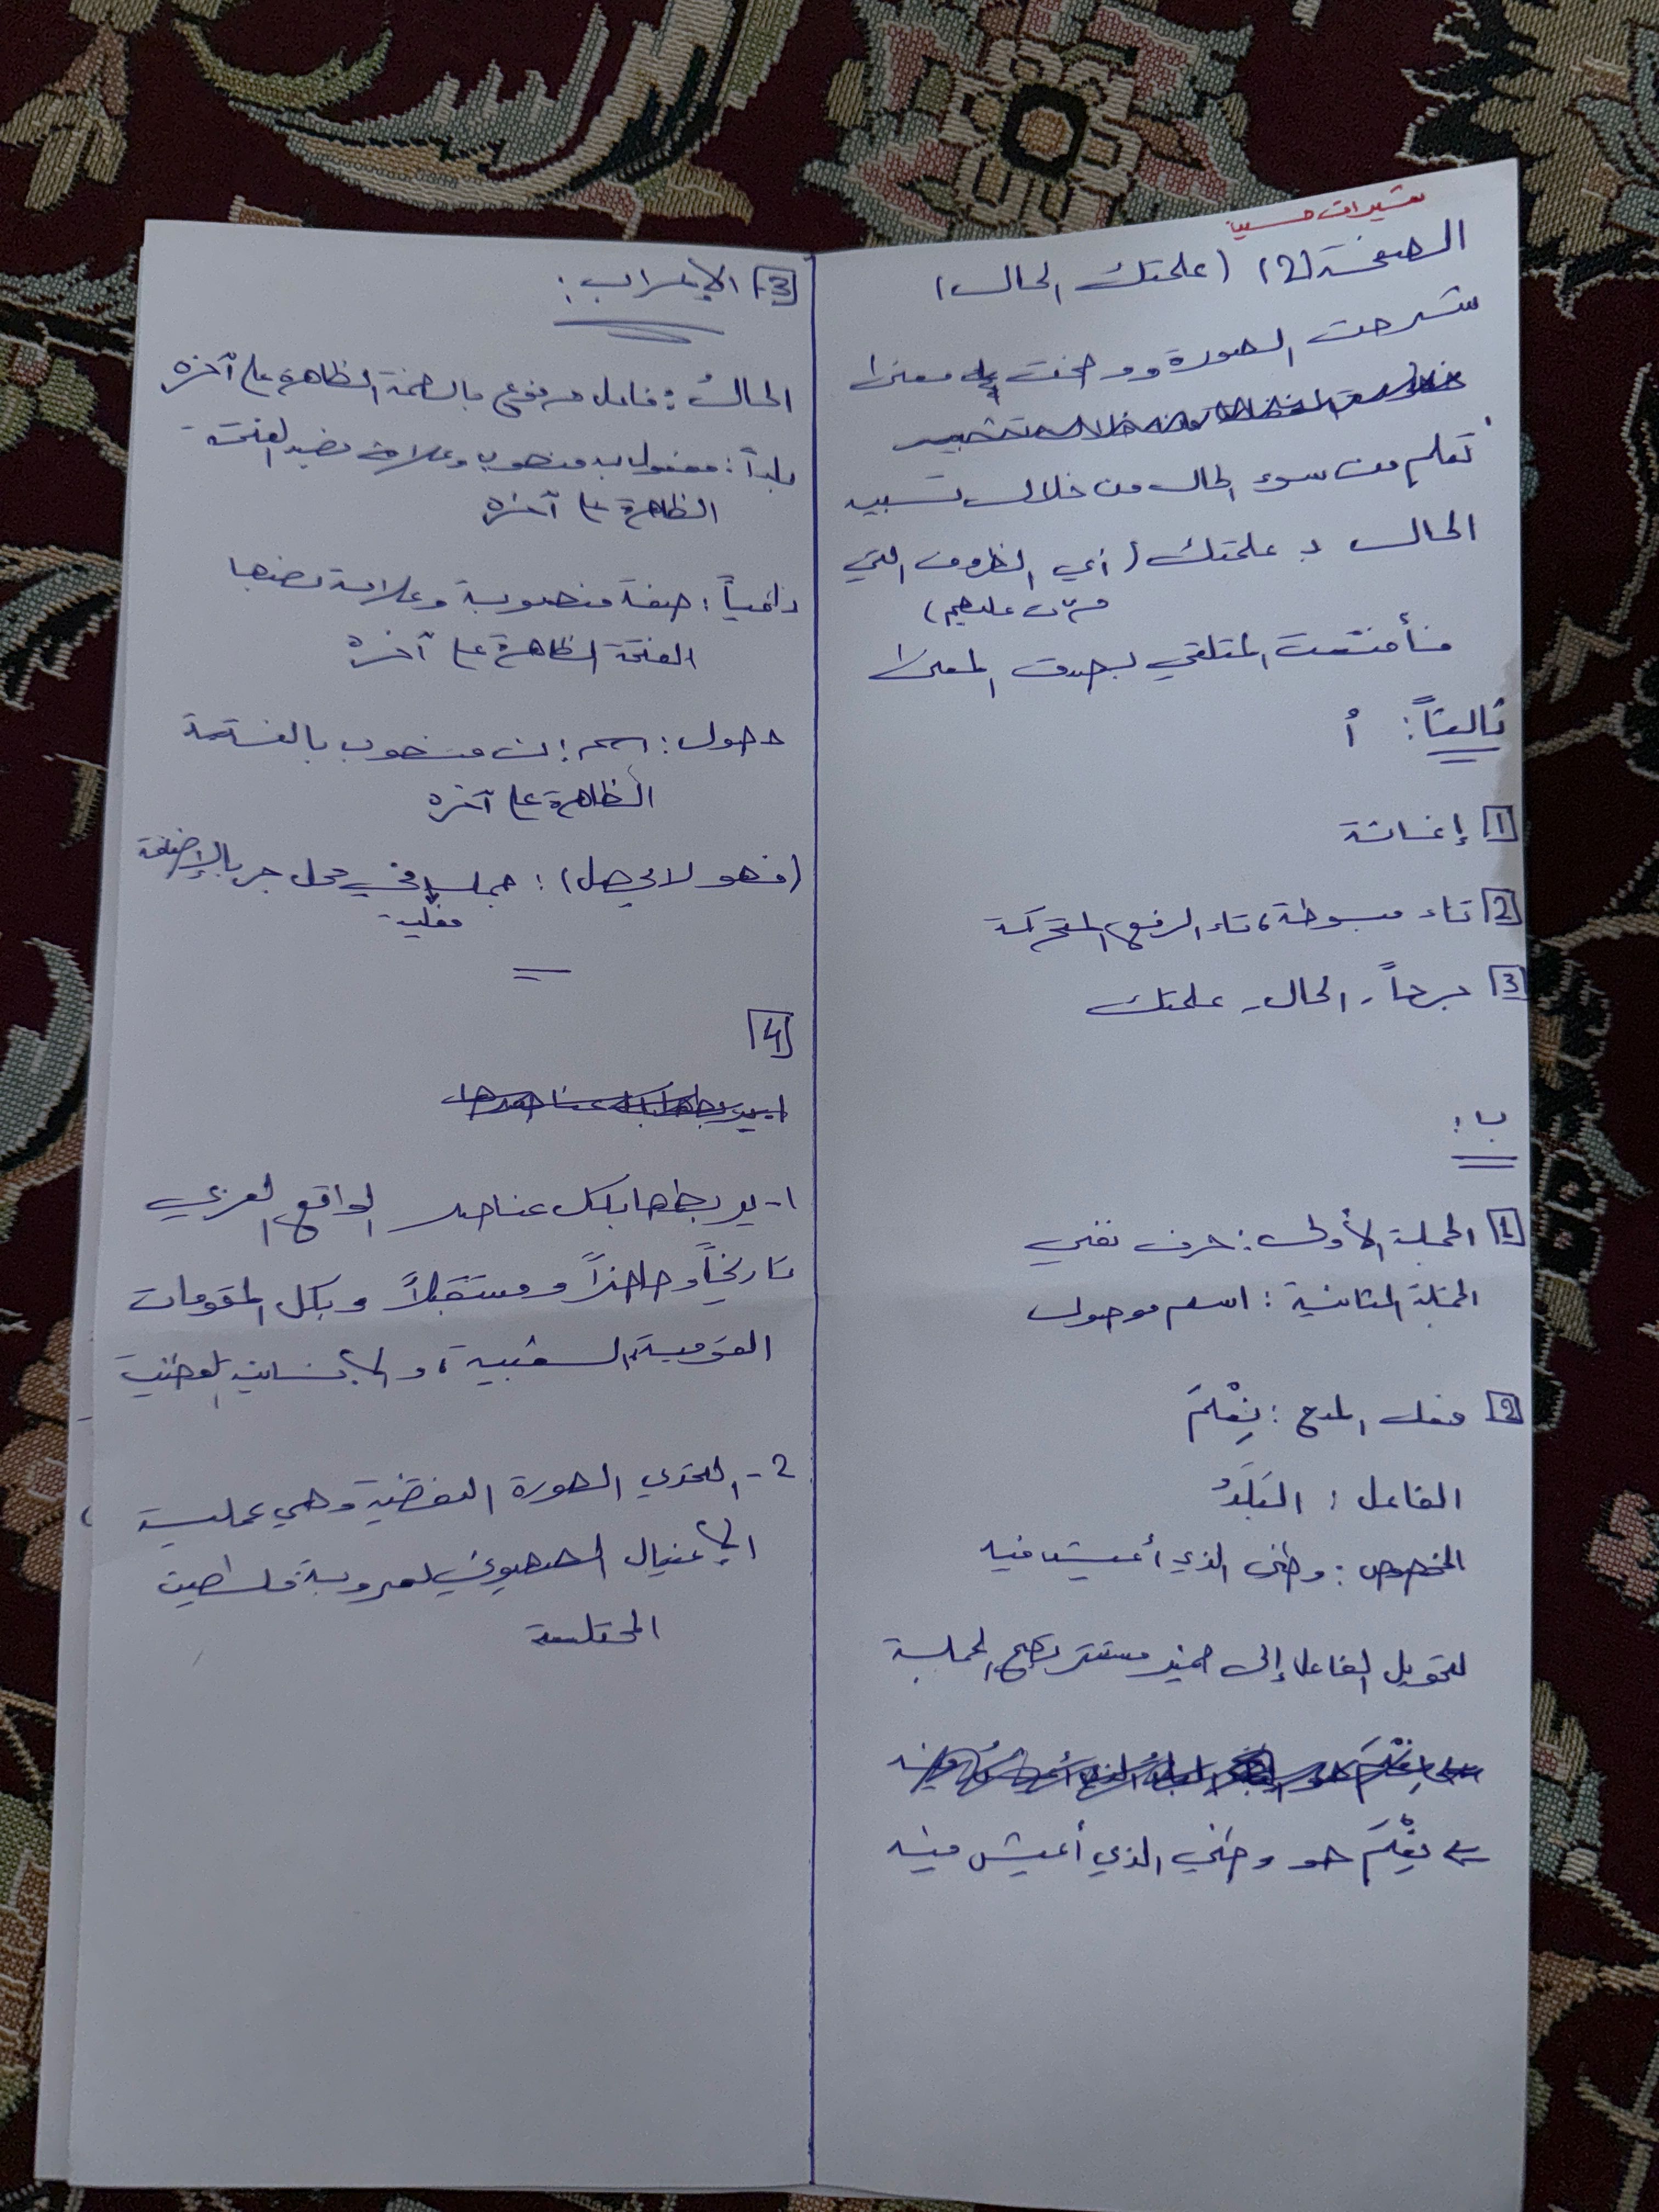 الصفحة (2) (علمتك الحال)
شرحت الصورة ووضحت معنى
تعلم من سوء الحال من خلال تشبيه
الحال علمتك (أي الظروف التي
مرّت عليهم)
فأقنعت المتلقي بصدق المعنى
ثالثاً: أ
1 إغاثة
2 تاء مبسوطة، تاء الرفع المتحركة
3 جرحاً - الحال - علمتك
ب:
1 الجملة الأولى: حرف نفي
الجملة الثانية: اسم موصول
2 فعل المدح: نِعْمَ
الفاعل: البَلَدُ
المخصوص: وطني الذي أعيش فيه
لتحويل الفاعل إلى ضمير مستتر تصبح الجملة
⇐ نِعْمَ هو وطني الذي أعيش فيه
3 الإعراب:
الحالُ: فاعل مرفوع بالضمة الظاهرة على آخره
بلداً: مفعول به منصوب وعلامة نصبه الفتحة
الظاهرة على آخره
: صفة منصوبة وعلامة نصبها
الفتحة الظاهرة على آخره
: اسم إن منصوب بالفتحة
الظاهرة على آخره
(فهو لا يحصل): جملة في محل جر بالإضافة
فعلية
4
1- يربطها بكل عناصر الواقع العربي
تاريخاً وحاضراً ومستقبلاً وبكل المقومات
القومية، الشعبية، والإنسانية، الوطنية
2- التحدي الصورة النقيضة وهي عملية
الاغتيال الصهيوني لعروبة فلسطين
المحتلة